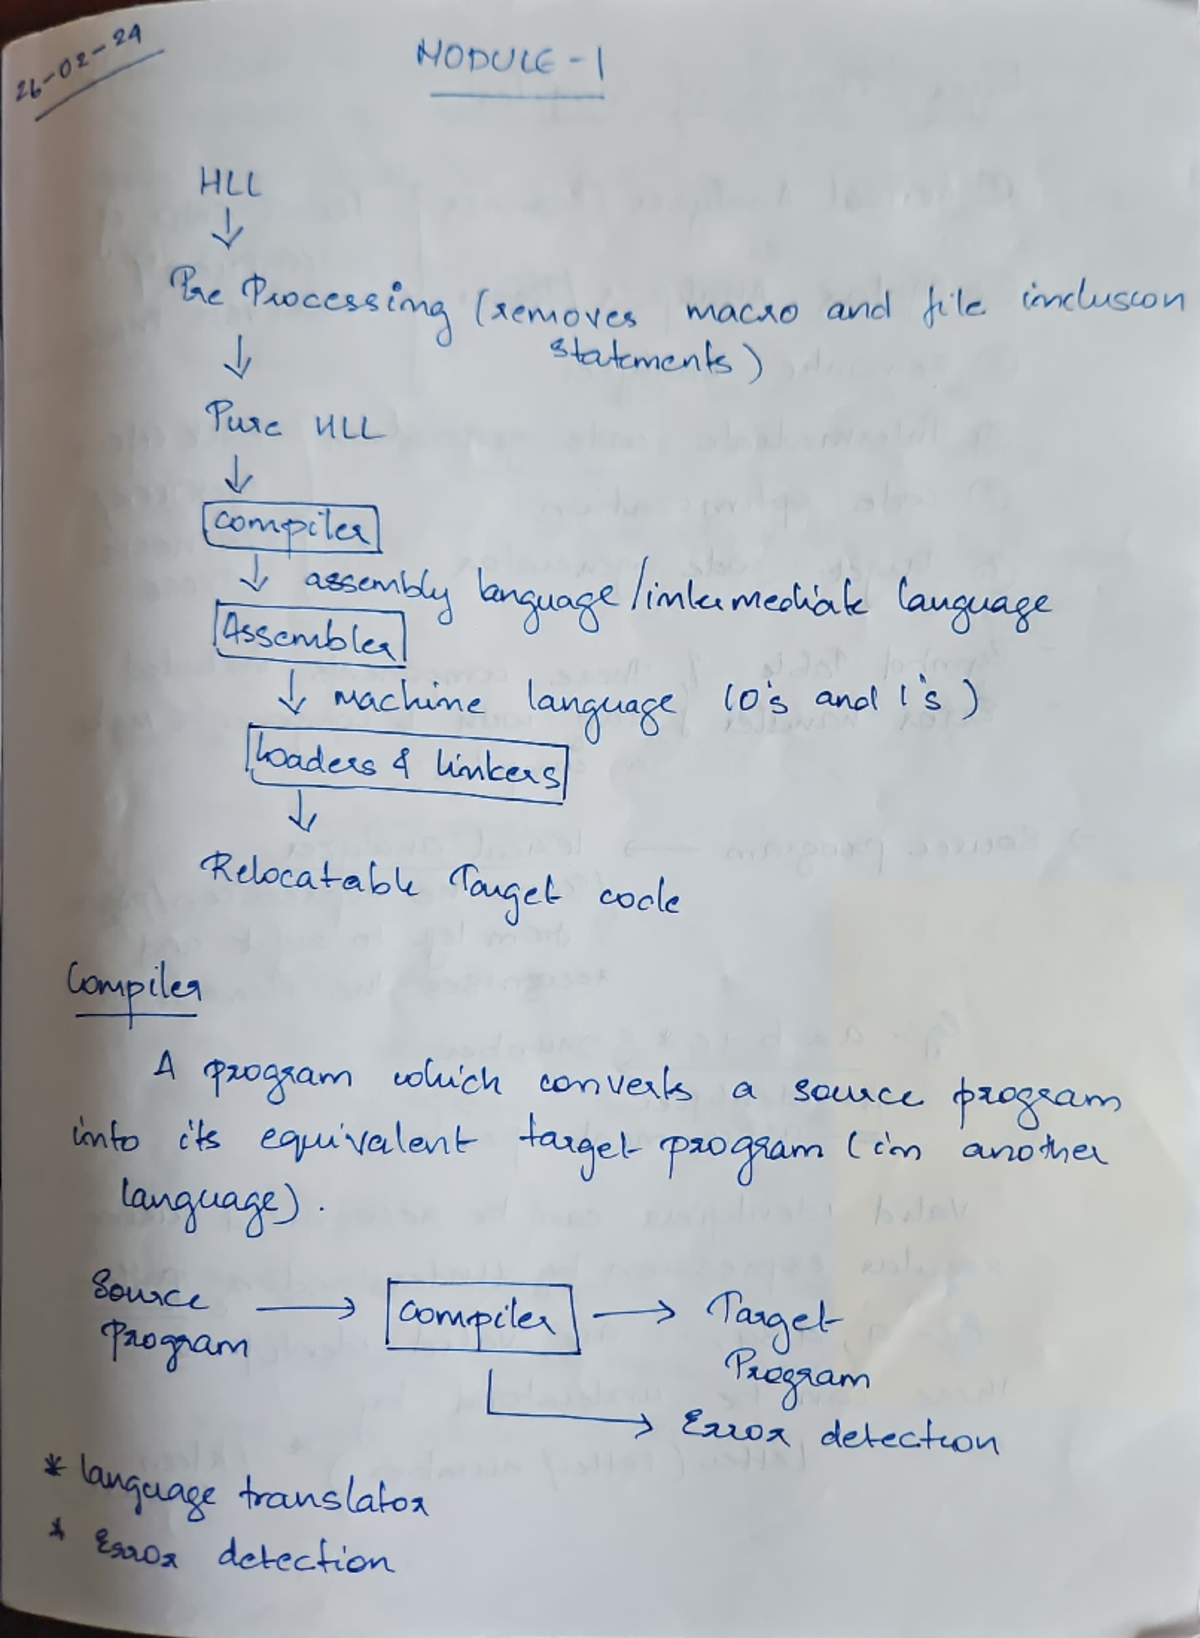 26-02-24
MODULE - 1
HLL
↓
Pre Processing (removes macro and file inclusion
statements)
↓
Pure HLL
↓
Compiler
↓ assembly language/intermediate language
Assembler
↓ machine language (0's and 1's)
Loaders & linkers
↓
Relocatable Target code
Compiler
A program which converts a source program
into its equivalent target program (in another
language).
Source → Compiler → Target
Program
Program
→ Error detection
* language translator
* Error detection